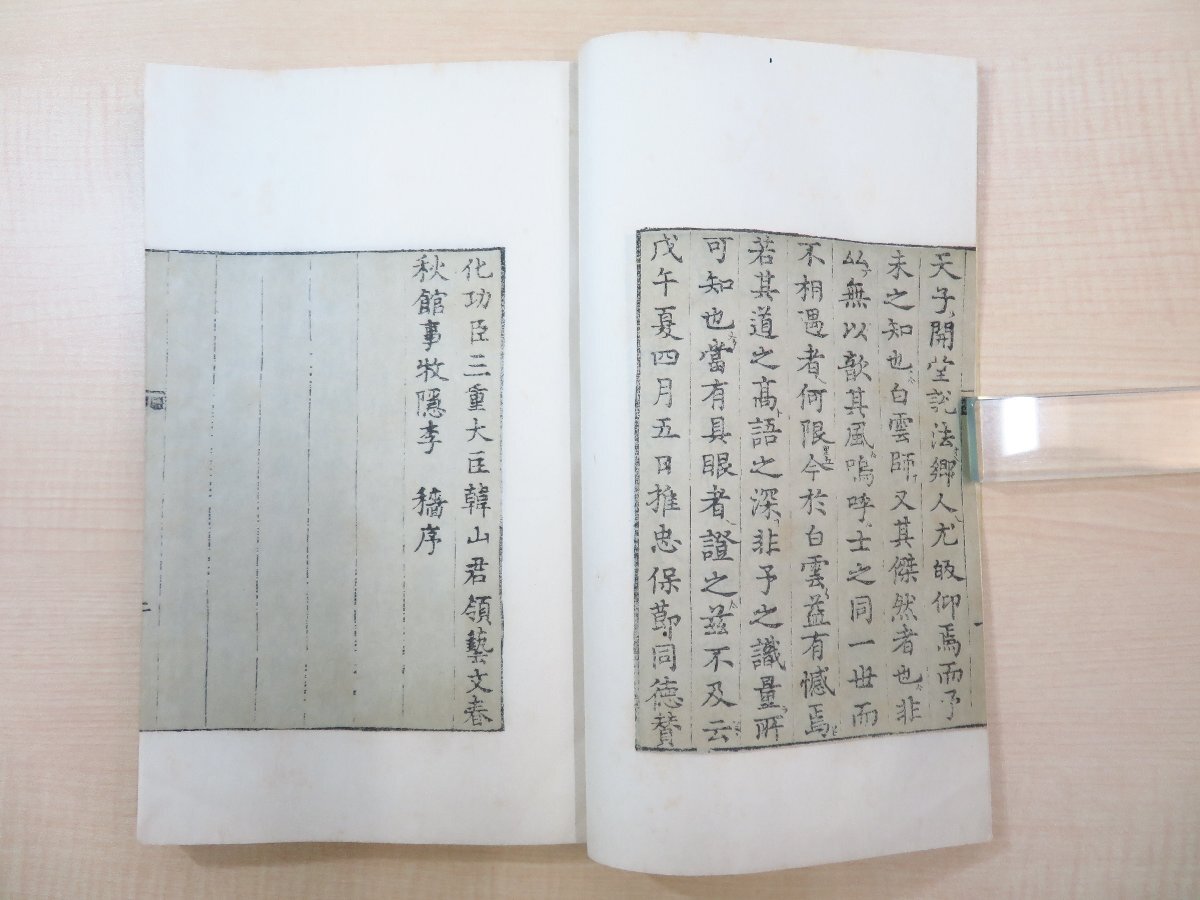 天子開堂說法鄉人尤皈仰焉而予
未之知也白雲師又其傑然者也非
無以歆其風嗚呼士之同一世而
不相遇者何限今於白雲益有憾焉
若其道之高語之深非予之識量所
可知也當有具眼者證之茲不及云
戊午夏四月五日推忠保節同德贊
化功臣三重大匡韓山君領藝文春
秋館事牧隱李 穡序
二